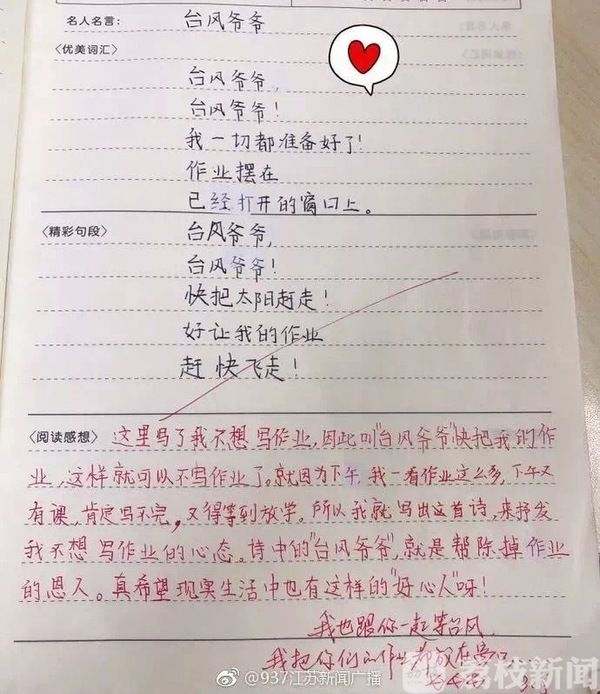 名人名言: 台风爷爷
〈优美词汇〉
台风爷爷,
台风爷爷!
我一切都准备好了!
作业摆在
已经打开的窗口上。
〈精彩句段〉 台风爷爷,
台风爷爷!
快把太阳赶走!
好让我的作业
赶快飞走!
〈阅读感想〉 这里写了我不想写作业,因此叫"台风爷爷"快把我的作
业,这样就可以不写作业了。就因为下午,我一看作业这么多,下午又
有课,肯定写不完,又得等到放学。所以我就写出这首诗,来抒发
我不想写作业的心态。诗中的"台风爷爷",就是帮除掉作业
的恩人。真希望现实生活中也有这样的"好心人"呀!
我也跟你一起等台风
我把你们的作业都放在窗口
@937江苏新闻广播
荔枝新闻